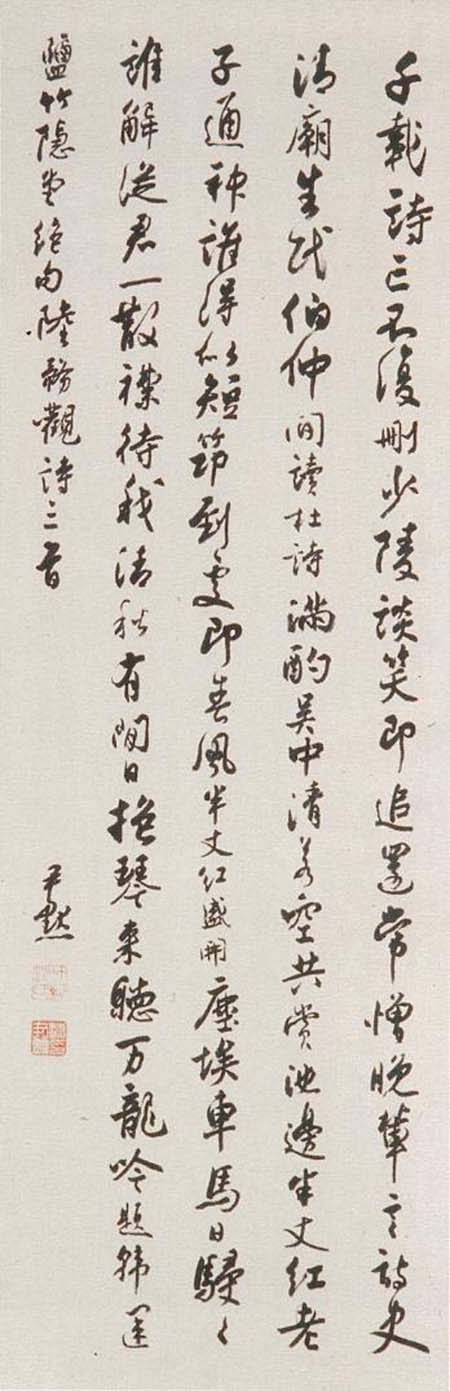 千載詩亡不復刪少陵談笑即追還常憎晚輩言詩史
清廟生民伯仲間讀杜詩滿酌吳中清若空共賞池邊半丈紅老
子通神誰得似短筇到處即春風半丈紅盛開塵埃車馬日駸々
誰解從君一散襟待我清秋有閒日抱琴來聽万龍吟題韓運
鹽竹隱堂絕句陸務觀詩三首
尹默